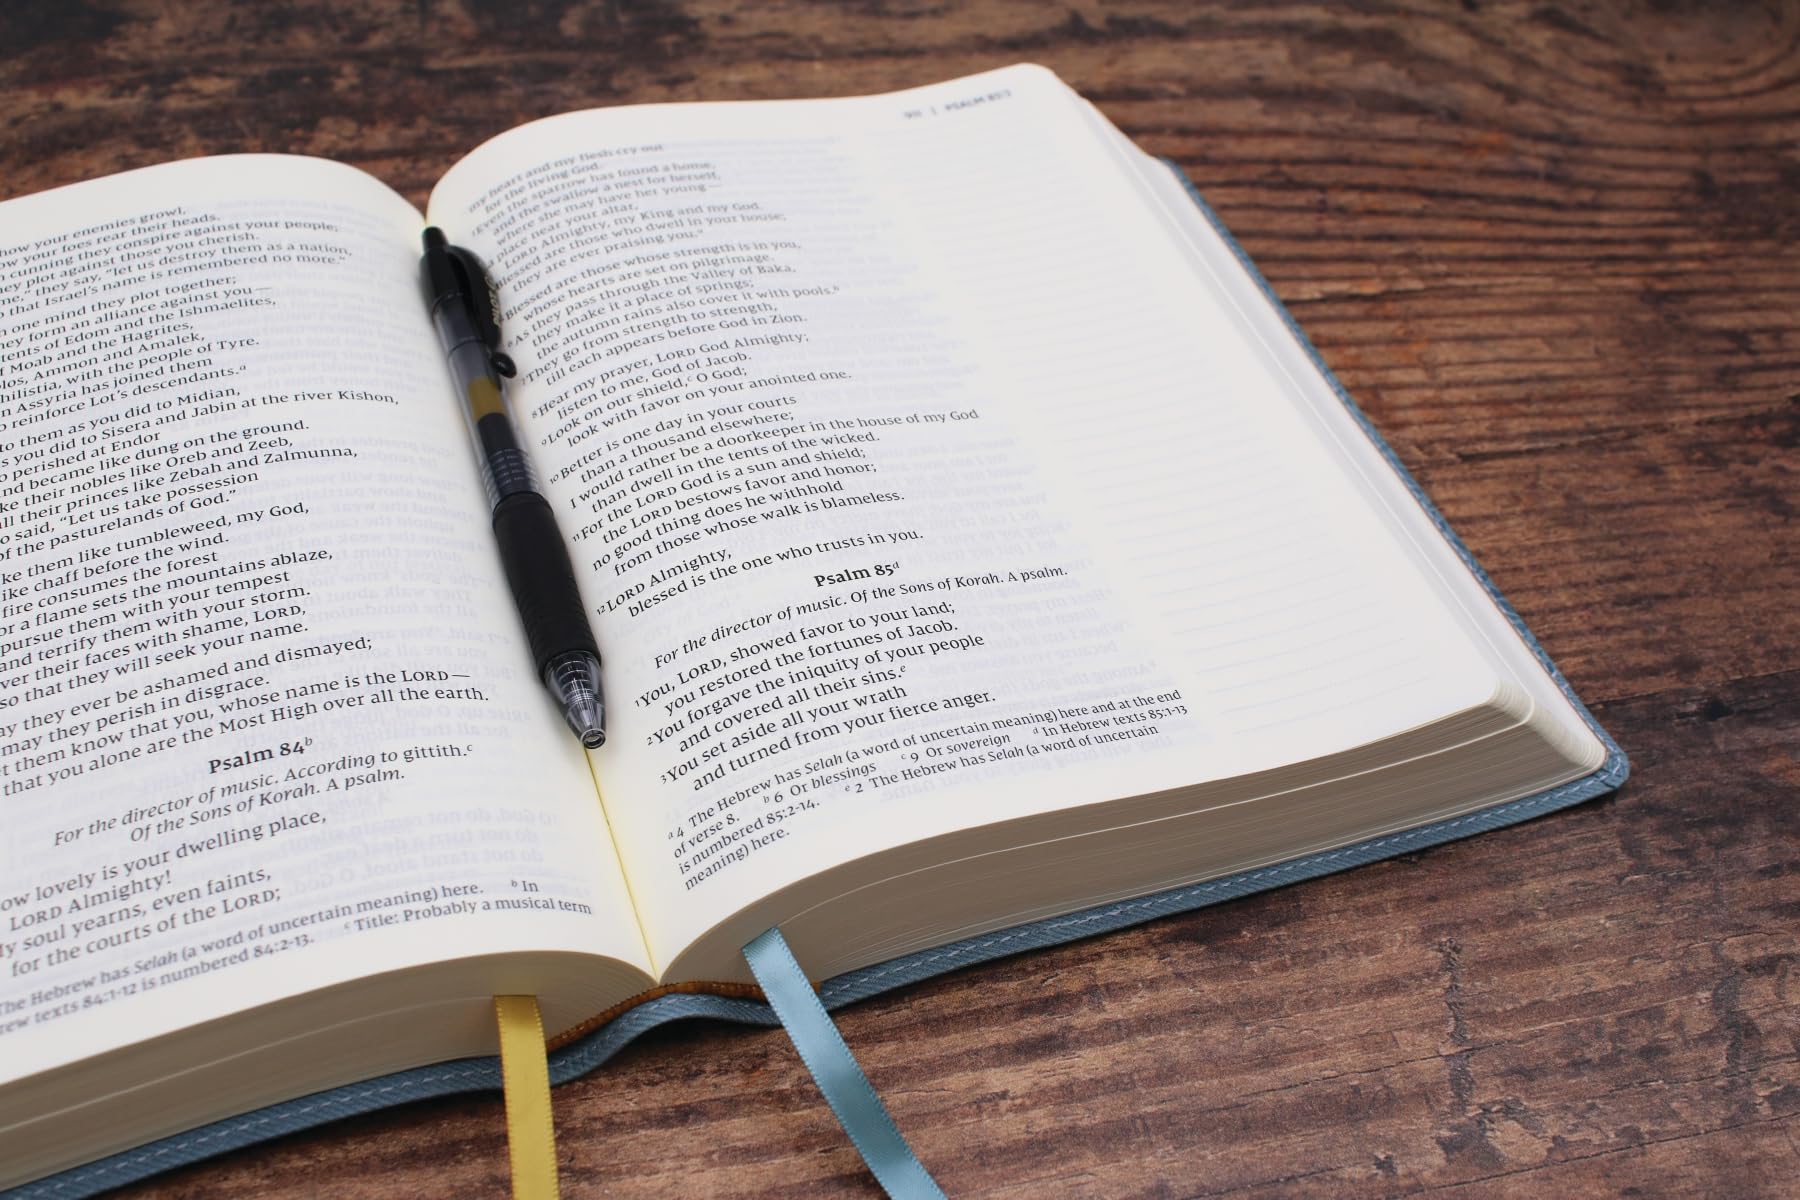 how your enemies growl,
how your foes rear their heads.
cunning they conspire against your people;
they plot against those you cherish.
they say, "let us destroy them as a nation,
that Israel's name is remembered no more."
one mind they plot together;
they form an alliance against you—
tents of Edom and the Ishmaelites,
Moab and the Hagrites,
Ammon and Amalek,
with the people of Tyre.
Assyria has joined them
reinforce Lot's descendants.a
to them as you did to Midian,
you did to Sisera and Jabin at the river Kishon,
perished at Endor
and became like dung on the ground.
their nobles like Oreb and Zeeb,
all their princes like Zebah and Zalmunna,
said, "Let us take possession
of the pasturelands of God."
them like tumbleweed, my God,
like chaff before the wind.
fire consumes the forest
or a flame sets the mountains ablaze,
pursue them with your tempest
and terrify them with your storm.
their faces with shame, LORD,
so that they will seek your name.
they ever be ashamed and dismayed;
may they perish in disgrace.
them know that you, whose name is the LORD—
that you alone are the Most High over all the earth.
Psalm 84b
For the director of music. According to gittith.c
Of the Sons of Korah. A psalm.
lovely is your dwelling place,
LORD Almighty!
soul yearns, even faints,
for the courts of the LORD;
The Hebrew has Selah (a word of uncertain meaning) here. b In
texts 84:1-12 is numbered 84:2-13. c Title: Probably a musical term
PSALM 85:3
my heart and my flesh cry out
for the living God.
Even the sparrow has found a home,
and the swallow a nest for herself,
where she may have her young—
a place near your altar,
LORD Almighty, my King and my God.
Blessed are those who dwell in your house;
they are ever praising you.a
Blessed are those whose strength is in you,
whose hearts are set on pilgrimage.
6 As they pass through the Valley of Baka,
they make it a place of springs;
the autumn rains also cover it with pools.b
7 They go from strength to strength,
till each appears before God in Zion.
8 Hear my prayer, LORD God Almighty;
listen to me, God of Jacob.
9 Look on our shield,c O God;
look with favor on your anointed one.
10 Better is one day in your courts
than a thousand elsewhere;
I would rather be a doorkeeper in the house of my God
than dwell in the tents of the wicked.
11 For the LORD God is a sun and shield;
the LORD bestows favor and honor;
no good thing does he withhold
from those whose walk is blameless.
12 LORD Almighty,
blessed is the one who trusts in you.
Psalm 85d
For the director of music. Of the Sons of Korah. A psalm.
1 You, LORD, showed favor to your land;
you restored the fortunes of Jacob.
2 You forgave the iniquity of your people
and covered all their sins.e
3 You set aside all your wrath
and turned from your fierce anger.
a 4 The Hebrew has Selah (a word of uncertain meaning) here and at the end
of verse 8. b 6 Or blessings c 9 Or sovereign d In Hebrew texts 85:1-13
is numbered 85:2-14. e 2 The Hebrew has Selah (a word of uncertain
meaning) here.